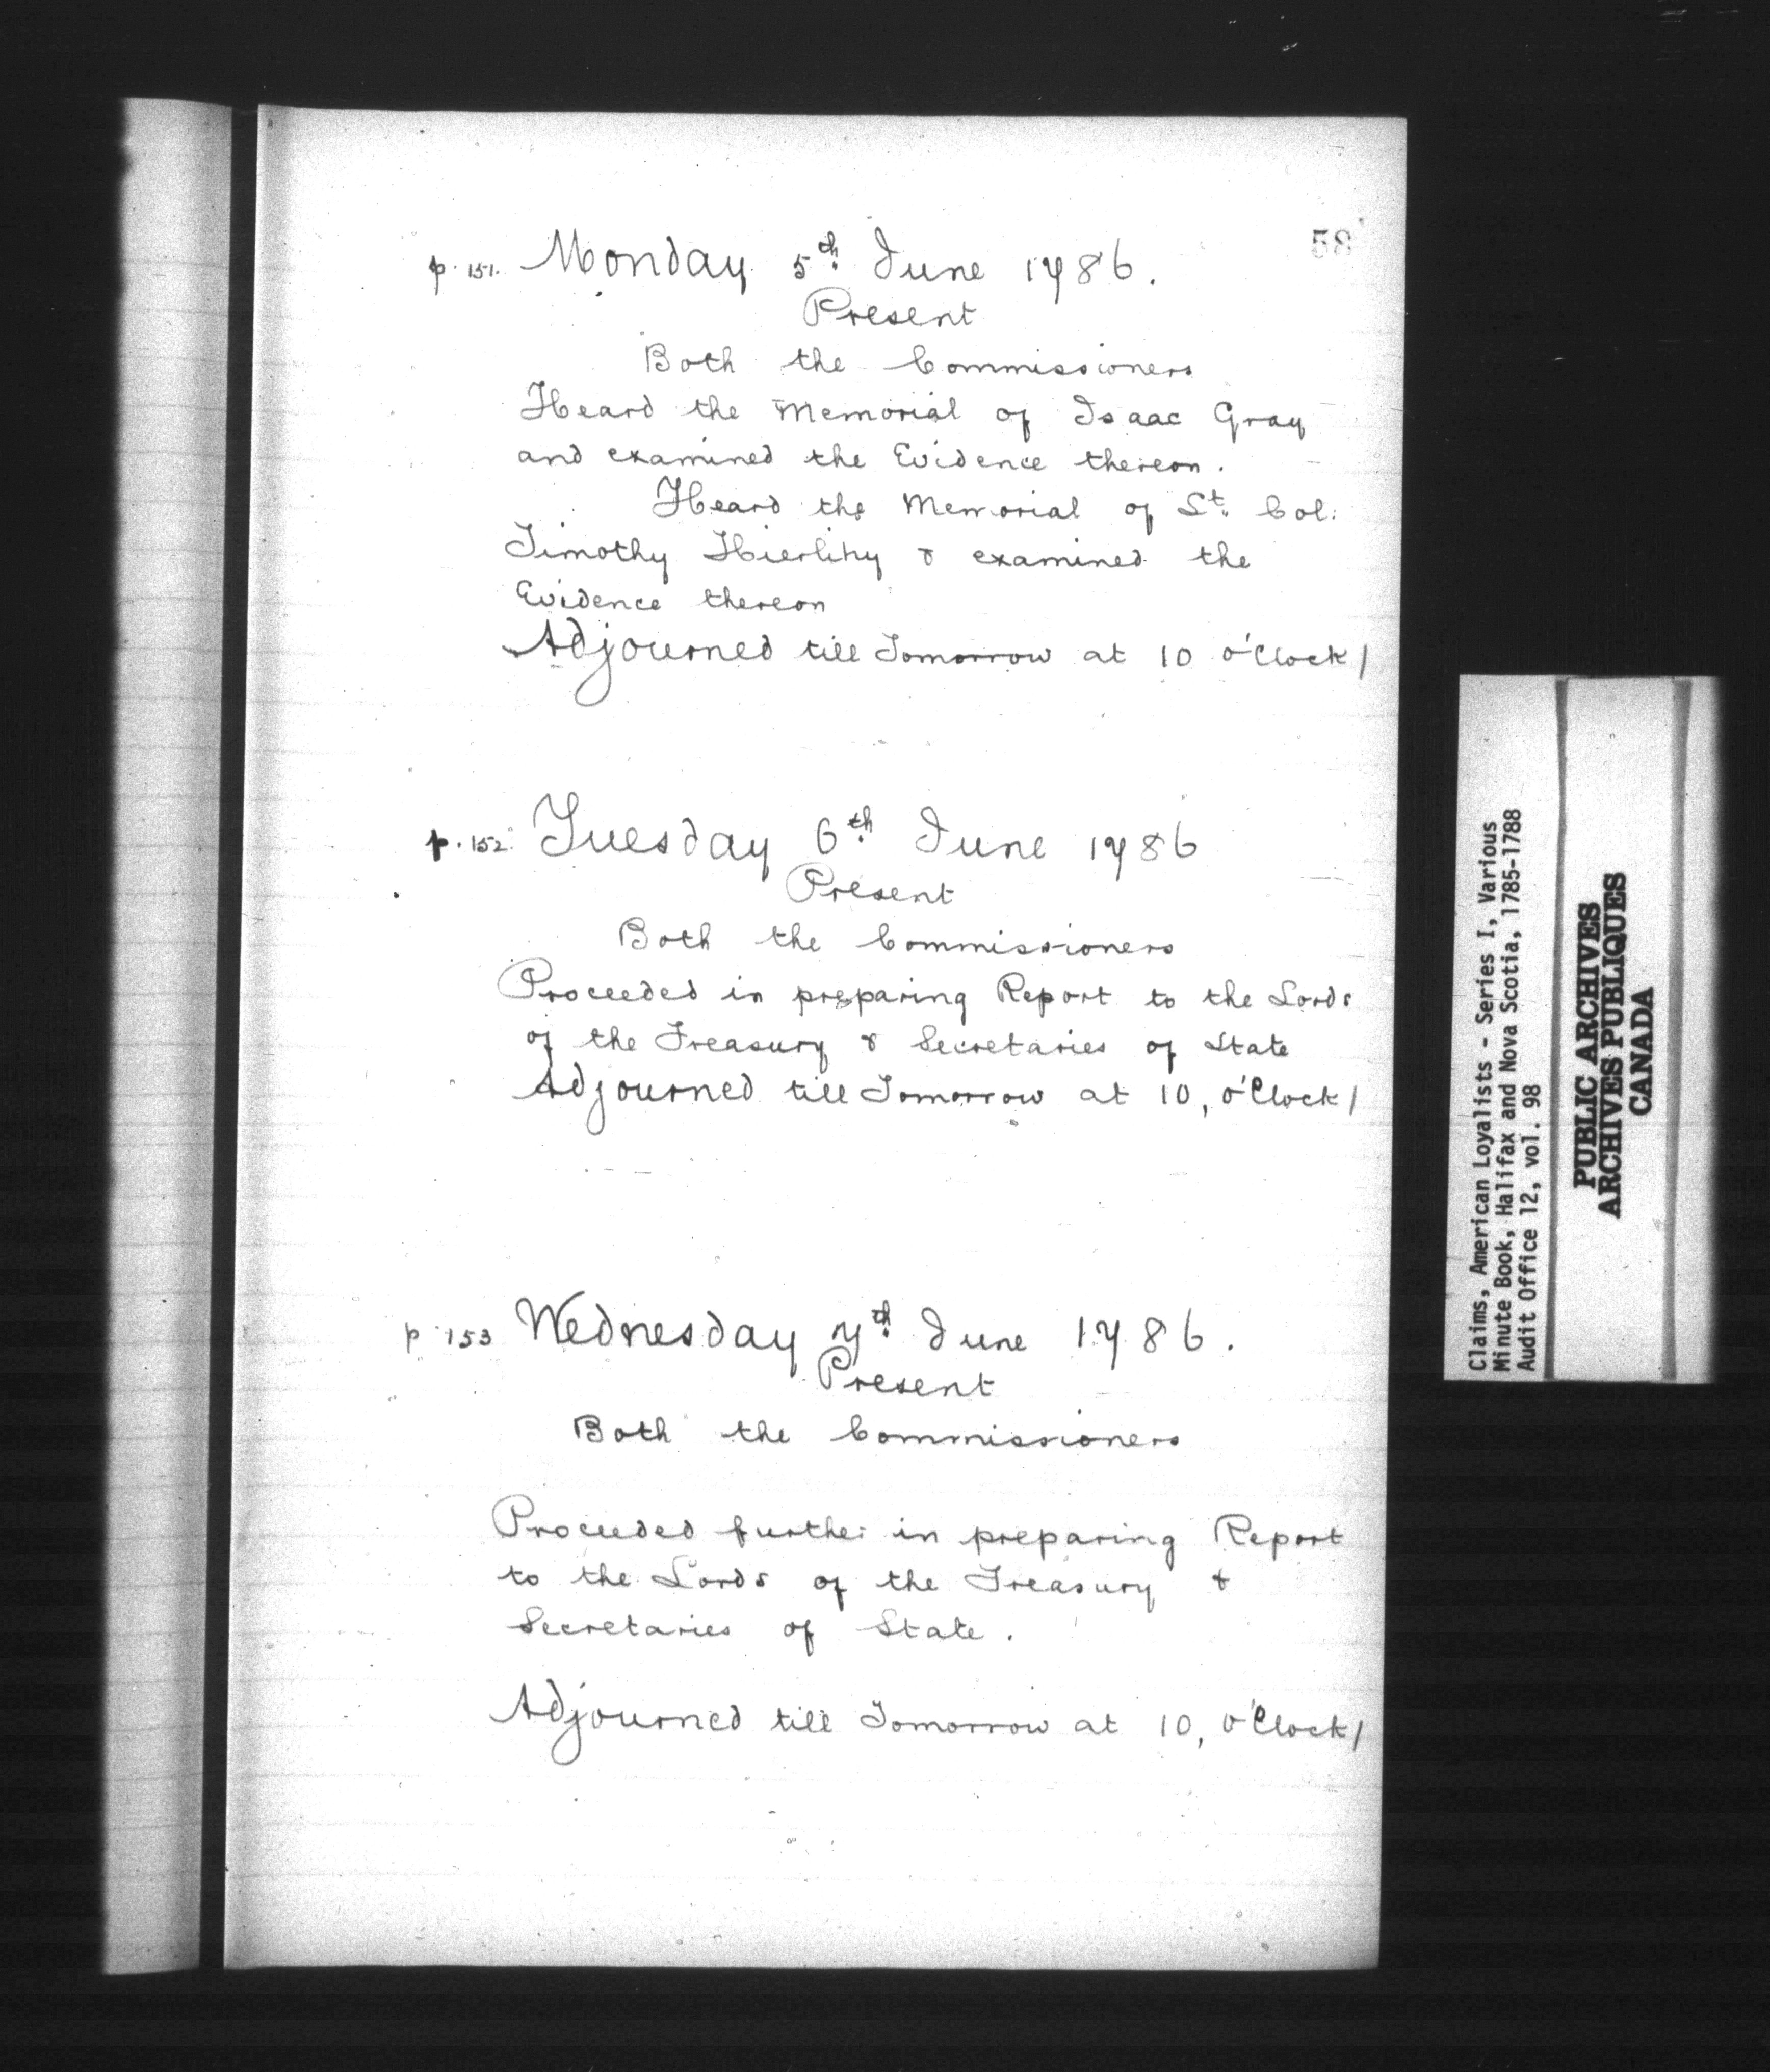 58
p. 151. Monday 5th June 1786.
Present
Both the Commissioners
Heard the Memorial of Isaac Gray
and examined the Evidence thereon.
Heard the Memorial of Lt. Col:
Timothy Hierlihy & examined the
Evidence thereon
Adjourned till Tomorrow at 10 o'Clock/
p. 152. Tuesday 6th June 1786
Present
Both the Commissioners
Proceeded in preparing Report to the Lords
of the Treasury & Secretaries of State
Adjourned till Tomorrow at 10, o'Clock/
p 153 Wednesday 7th June 1786.
Present
Both the Commissioners
Proceeded further in preparing Report
to the Lords of the Treasury &
Secretaries of State.
Adjourned till Tomorrow at 10, o'Clock/
Claims, American Loyalists - Series I, Various
Minute Book, Halifax and Nova Scotia, 1785-1788
Audit Office 12, vol. 98
PUBLIC ARCHIVES
ARCHIVES PUBLIQUES
CANADA